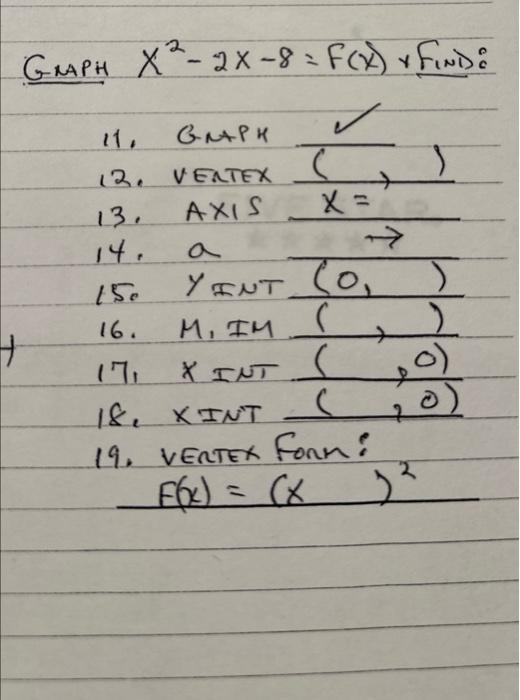 GRAPH X² - 2X - 8 = F(X) + FIND:
11. GRAPH ✓
12. VERTEX ( , )
13. AXIS X =
14. a →
15. Y INT (0, )
16. M. IM ( , )
17. X INT ( , 0)
18. X INT ( , 0)
19. VERTEX FORM:
F(x) = (X )²